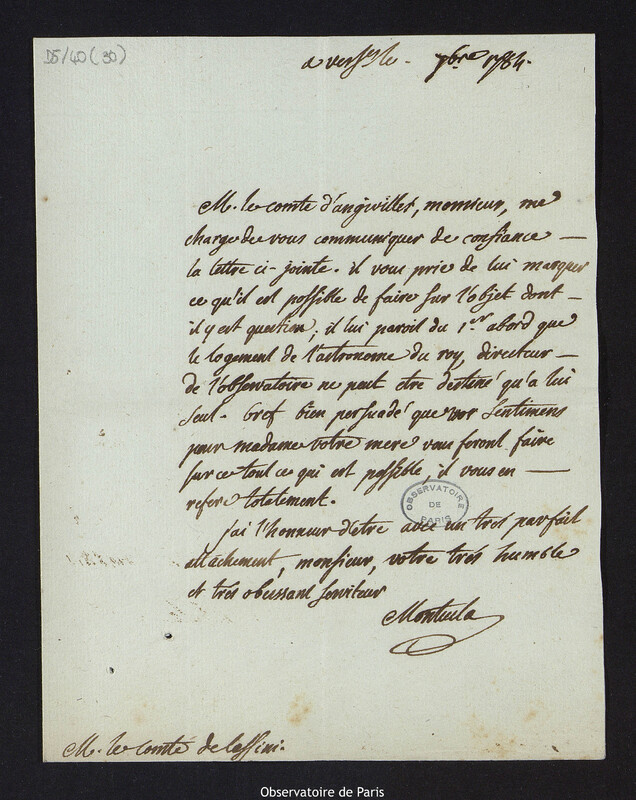 D5/40 (30)
a vers.es le - 7bre 1784.
M. le comte d'angiviller, monsieur, me
charge de vous communiquer de confiance —
la lettre ci-jointe. il vous prie de lui marquer
ce qu'il est possible de faire sur l'objet dont —
il y est question; il lui paroit du 1er abord que
le logement de l'astronome du roy, directeur —
de l'observatoire ne peut etre destiné qu'a lui
seul. bien persuadé que vos sentimens
pour madame votre mere vous feront faire
sur ce tout ce qui est possible, il vous en —
refere totalement.
j'ai l'honneur d'etre avec un tres parfait
attachement, monsieur, votre tres humble
et tres obeissant serviteur
Montucla
OBSERVATOIRE
DE
PARIS
M. le comte de Cassini.
Observatoire de Paris